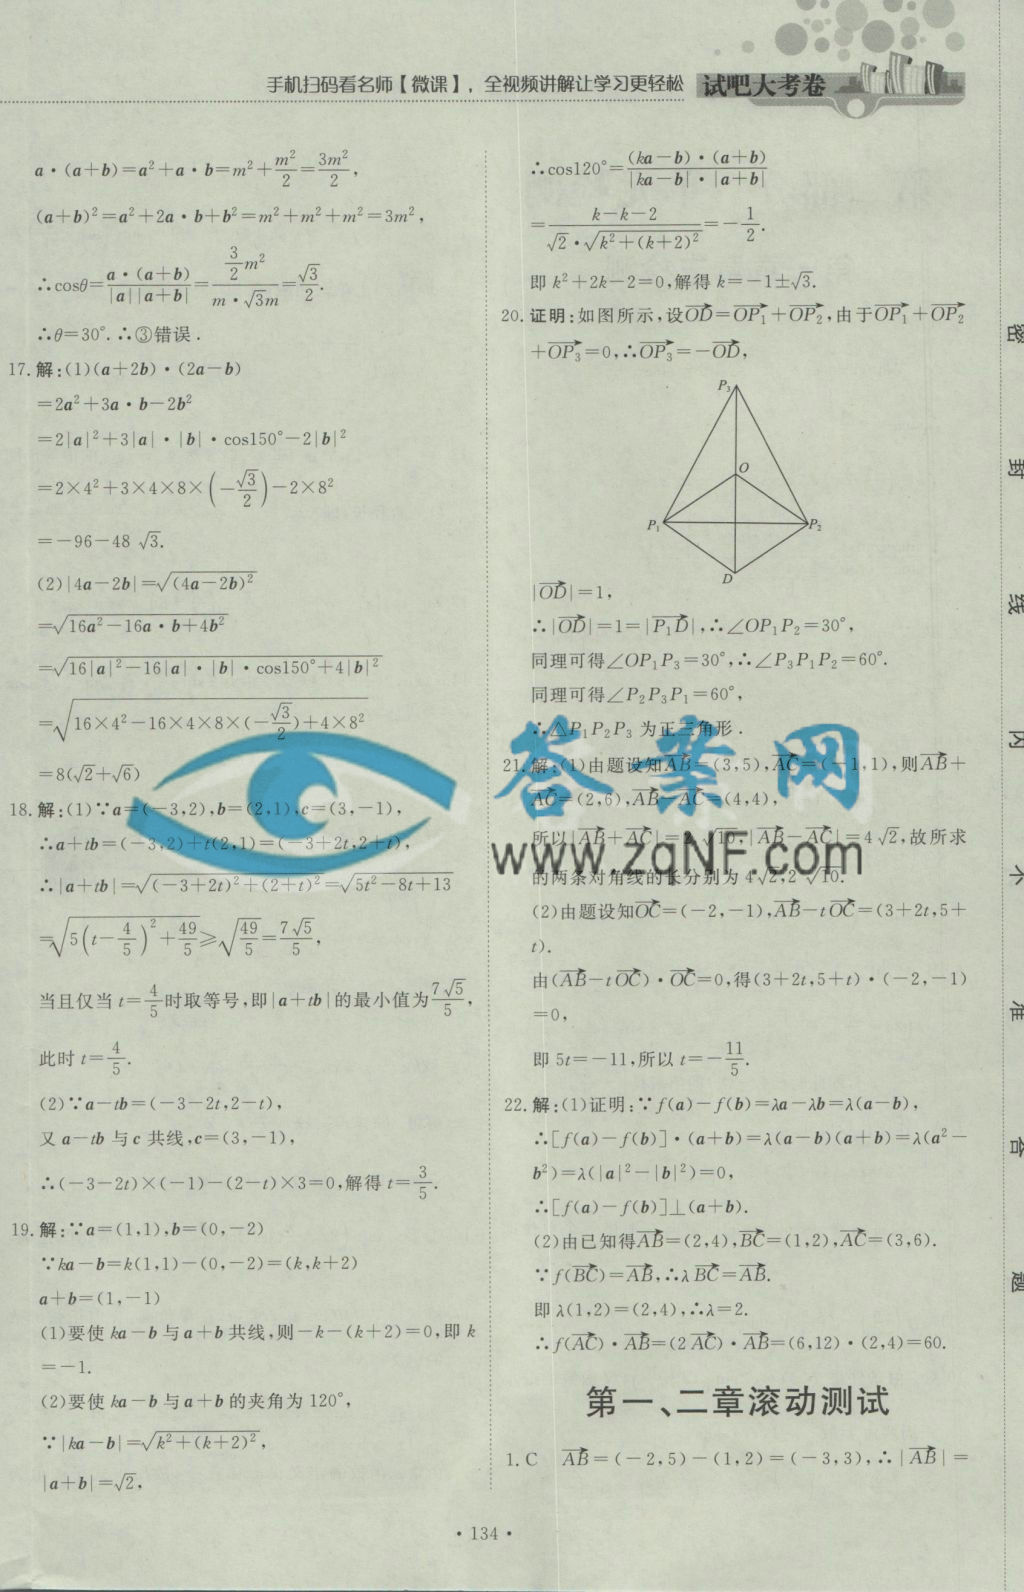 手机扫码看名师【微课】，全视频讲解让学习更轻松
试吧大考卷
a·(a+b)=a²+a·b=m²+m²/2=3m²/2,
(a+b)²=a²+2a·b+b²=m²+m²+m²=3m²,
∴cosθ=a·(a+b)/|a||a+b|=(3/2)m²/(m·√3m)=√3/2.
∴θ=30°.∴③错误.
17.解:(1)(a+2b)·(2a-b)
=2a²+3a·b-2b²
=2|a|²+3|a|·|b|·cos150°-2|b|²
=2×4²+3×4×8×(-√3/2)-2×8²
=-96-48√3.
(2)|4a-2b|=√(4a-2b)²
=√(16a²-16a·b+4b²)
=√(16|a|²-16|a|·|b|·cos150°+4|b|²)
=√(16×4²-16×4×8×(-√3/2)+4×8²)
=8(√2+√6)
18.解:(1)∵a=(-3,2),b=(2,1),c=(3,-1),
∴a+tb=(-3,2)+t(2,1)=(-3+2t,2+t),
∴|a+tb|=√((-3+2t)²+(2+t)²)=√(5t²-8t+13)
=√(5(t-4/5)²+49/5)≥√(49/5)=7√5/5,
当且仅当t=4/5时取等号,即|a+tb|的最小值为7√5/5,
此时t=4/5.
(2)∵a-tb=(-3-2t,2-t),
又a-tb与c共线,c=(3,-1),
∴(-3-2t)×(-1)-(2-t)×3=0,解得t=3/5.
19.解:∵a=(1,1),b=(0,-2)
∵ka-b=k(1,1)-(0,-2)=(k,k+2)
a+b=(1,-1)
(1)要使ka-b与a+b共线,则-k-(k+2)=0,即k
=-1.
(2)要使ka-b与a+b的夹角为120°,
∵|ka-b|=√(k²+(k+2)²),
|a+b|=√2,
∴cos120°=(ka-b)·(a+b)/|ka-b|·|a+b|
=(k-k-2)/(√2·√(k²+(k+2)²))=-1/2.
即k²+2k-2=0,解得k=-1±√3.
20.证明:如图所示,设OD=OP₁+OP₂,由于OP₁+OP₂
+OP₃=0,∴OP₃=-OD,
P₃
O
P₁
P₂
D
|OD|=1,
∴|OD|=1=|P₁D|,∴∠OP₁P₂=30°,
同理可得∠OP₁P₃=30°,∴∠P₃P₁P₂=60°.
同理可得∠P₂P₃P₁=60°,
∴△P₁P₂P₃为正三角形.
21.解:(1)由题设知AB=(3,5),AC=(-1,1),则AB+
AC=(2,6),AB-AC=(4,4),
所以|AB+AC|=2√10,|AB-AC|=4√2,故所求
的两条对角线的长分别为4√2,2√10.
(2)由题设知OC=(-2,-1),AB-tOC=(3+2t,5+
t).
由(AB-tOC)·OC=0,得(3+2t,5+t)·(-2,-1)
=0,
即5t=-11,所以t=-11/5.
22.解:(1)证明:∵f(a)-f(b)=λa-λb=λ(a-b),
∴[f(a)-f(b)]·(a+b)=λ(a-b)(a+b)=λ(a²-
b²)=λ(|a|²-|b|²)=0,
∴[f(a)-f(b)]⊥(a+b).
(2)由已知得AB=(2,4),BC=(1,2),AC=(3,6).
∵f(BC)=AB,∴λBC=AB.
即λ(1,2)=(2,4),∴λ=2.
∴f(AC)·AB=(2AC)·AB=(6,12)·(2,4)=60.
第一、二章滚动测试
1.C AB=(-2,5)-(1,2)=(-3,3),∴|AB|=
·134·
密
封
线
内
不
准
答
题
答案网
www.zqNF.com